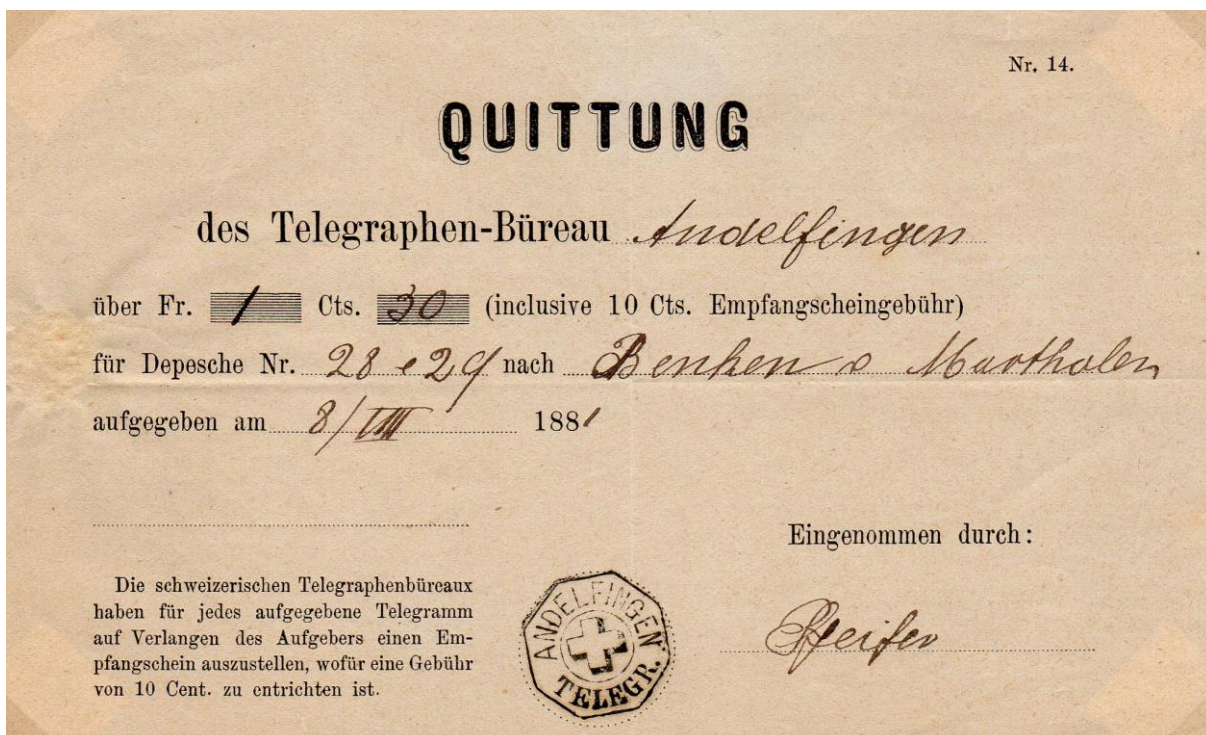 Nr. 14.
QUITTUNG
des Telegraphen-Büreau Andelfingen
über Fr. 1 Cts. 30 (inclusive 10 Cts. Empfangscheingebühr)
für Depesche Nr. 28 e 29 nach Benken e Marthalen
aufgegeben am 8/VIII 1881
Eingenommen durch:
Die schweizerischen Telegraphenbüreaux
haben für jedes aufgegebene Telegramm
auf Verlangen des Aufgebers einen Em-
pfangschein auszustellen, wofür eine Gebühr
von 10 Cent. zu entrichten ist.
ANDELFINGEN
TELEGR.
Pfeifer